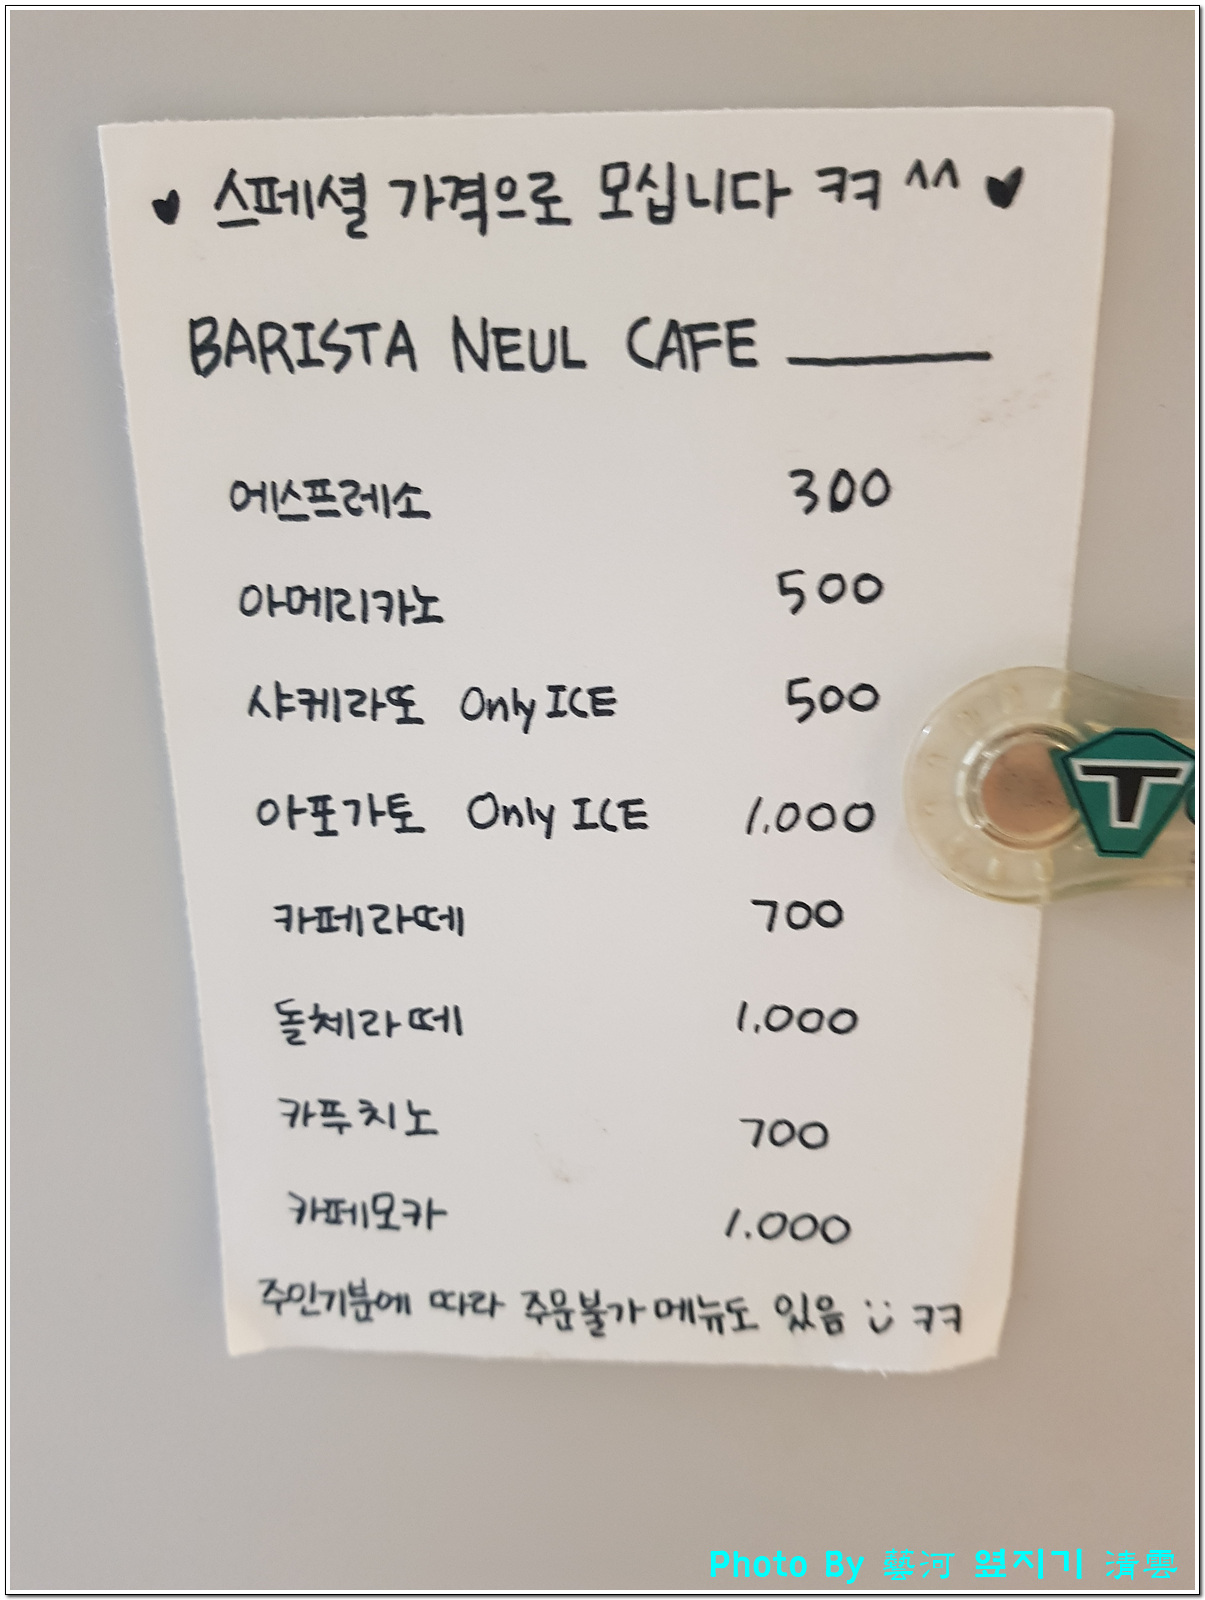 ♥ 스페셜 가격으로 모십니다 ㅋㅋ ^^ ♥
BARISTA NEUL CAFE
에스프레소 300
아메리카노 500
샤케라또 Only ICE 500
아포가토 Only ICE 1.000
카페라떼 700
돌체라떼 1.000
카푸치노 700
카페모카 1.000
주인기분에 따라 주문불가 메뉴도 있음 ㅋㅋ
T
Photo By 藝河 옆지기 清雲